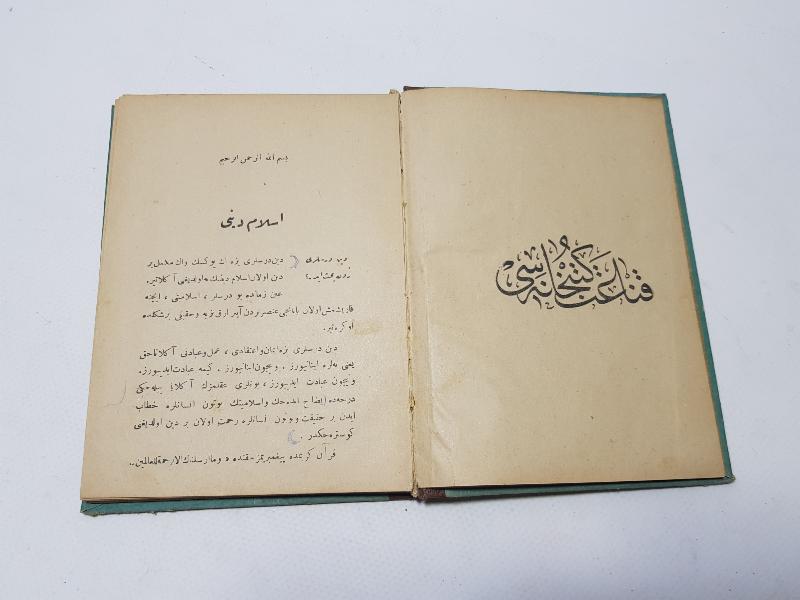 قناعت كتبخانه‌سى
بسم الله الرحمن الرحيم
اسلام دينى
دين درسلرى نه‌دن بحث ايدر؟
دين درسلرى بزه اك يوكسك واك مكمل بر
دين اولان اسلام دينك نه اولديغنى آكلاتير.
عين زمانده بو درسلر ، اسلاميتى ، ايچنه
قاريشمش اولان يابانجى عنصردن آييرارق بزه حقيقى برشكلده
اوكره‌تير.
دين درسلرى بزه ايمان واعتقادى ، عمل وعبادتى آكلاتاجق
يعنى نه‌لره اينانييورز . ونيچون اينانييورز. كيمه عبادت ايدييورز.
ونيچون عبادت ايدييورز ، بونلرى عقلمزك آكلايا بيله‌جكى
درجه‌ده ايضاح ايده‌جك واسلاميتك بوتون انسانلره خطاب
ايدن بر حقيقت وبوتون انسانلره رحمت اولان بر دين اولديغنى
كوستره‌جكدر .
قرآن كريمده پيغمبريمز حقنده « وما ارسلناك الا رحمة للعالمين..